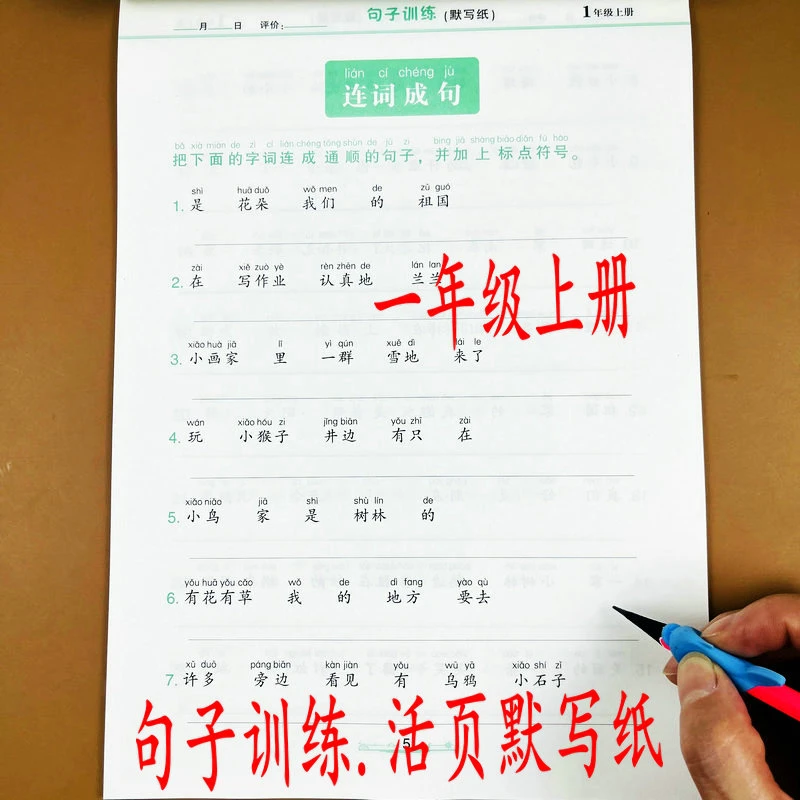 ____月____日 评价:________ 句子训练(默写纸) 1年级上册
lián cí chéng jù
连词成句
bǎ xià miàn de zì cí lián chéng tōng shùn de jù zi bìng jiā shàng biāo diǎn fú hào
把下面的字词连成通顺的句子，并加上标点符号。
shì huā duǒ wǒ men de zǔ guó
1. 是 花朵 我们 的 祖国
zài xiě zuò yè rèn zhēn de lán lan
2. 在 写作业 认真地 兰兰
一年级上册
xiǎo huà jiā lǐ yì qún xuě dì lái le
3. 小画家 里 一群 雪地 来了
wán xiǎo hóu zi jǐng biān yǒu zhī zài
4. 玩 小猴子 井边 有只 在
xiǎo niǎo jiā shì shù lín de
5. 小鸟 家 是 树林 的
yǒu huā yǒu cǎo wǒ de dì fang yào qù
6. 有花有草 我 的 地方 要去
xǔ duō páng biān kàn jiàn yǒu wū yā xiǎo shí zǐ
7. 许多 旁边 看见 有 乌鸦 小石子
句子训练.活页默写纸
5